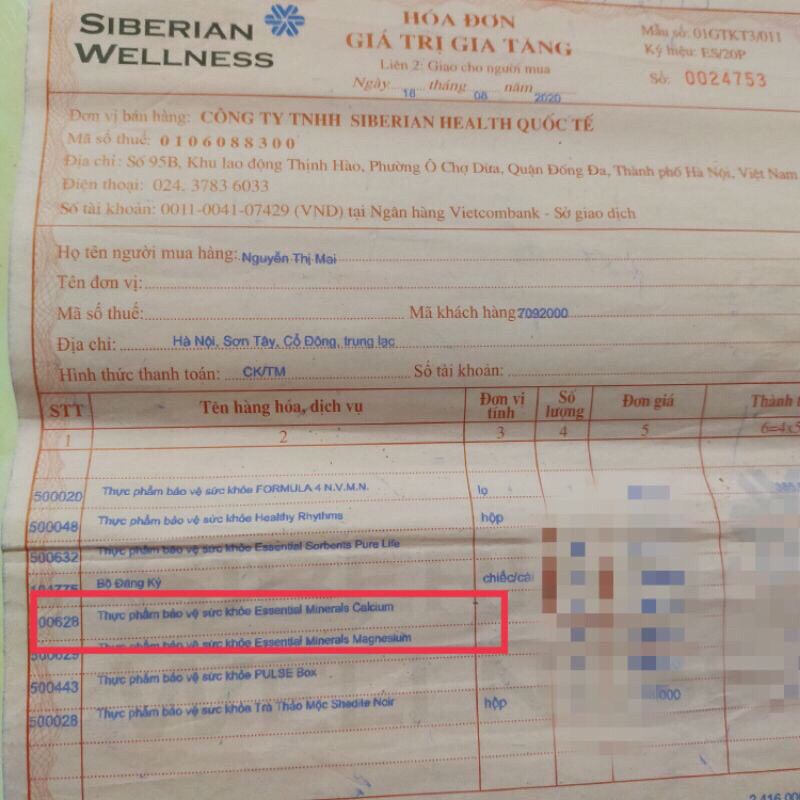 SIBERIAN
WELLNESS
HÓA ĐƠN
GIÁ TRỊ GIA TĂNG
Liên 2: Giao cho người mua
Ngày 18 tháng 08 năm 2020
Mẫu số: 01GTKT3/011
Ký hiệu: ES/20P
Số: 0024753
Đơn vị bán hàng: CÔNG TY TNHH SIBERIAN HEALTH QUỐC TẾ
Mã số thuế: 0106088300
Địa chỉ: Số 95B, Khu lao động Thịnh Hào, Phường Ô Chợ Dừa, Quận Đống Đa, Thành phố Hà Nội, Việt Nam
Điện thoại: 024. 3783 6033
Số tài khoản: 0011-0041-07429 (VND) tại Ngân hàng Vietcombank - Sở giao dịch
Họ tên người mua hàng: Nguyễn Thị Mai
Tên đơn vị:
Mã số thuế: Mã khách hàng 7092000
Địa chỉ: Hà Nội, Sơn Tây, Cổ Đông, trung lạc
Hình thức thanh toán: CK/TM Số tài khoản:
STT Tên hàng hóa, dịch vụ Đơn vị tính Số lượng Đơn giá Thành t
1 2 3 4 5 6=4x5
500020 Thực phẩm bảo vệ sức khỏe FORMULA 4 N.V.M.N. lọ
500048 Thực phẩm bảo vệ sức khỏe Healthy Rhythms hộp
500632 Thực phẩm bảo vệ sức khỏe Essential Sorbents Pure Life
104775 Bộ Đăng Ký chiếc/cái
00628 Thực phẩm bảo vệ sức khỏe Essential Minerals Calcium
500629 Thực phẩm bảo vệ sức khỏe Essential Minerals Magnesium
500443 Thực phẩm bảo vệ sức khỏe PULSE Box
500028 Thực phẩm bảo vệ sức khỏe Trà Thảo Mộc Shedite Noir hộp 000